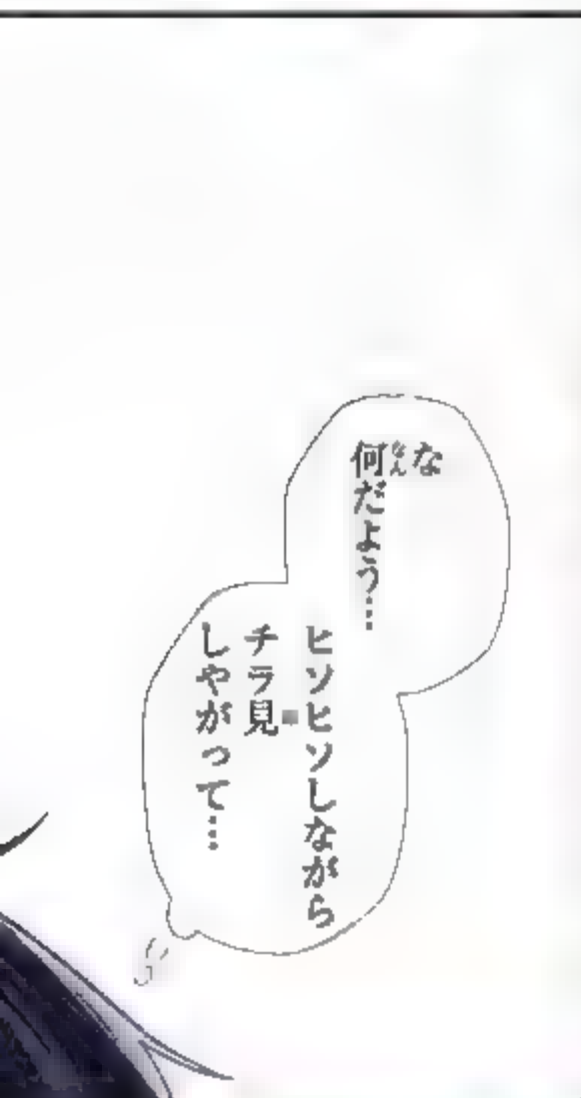 な
何だよう…
ヒソヒソしながら
チラ見
しやがって…